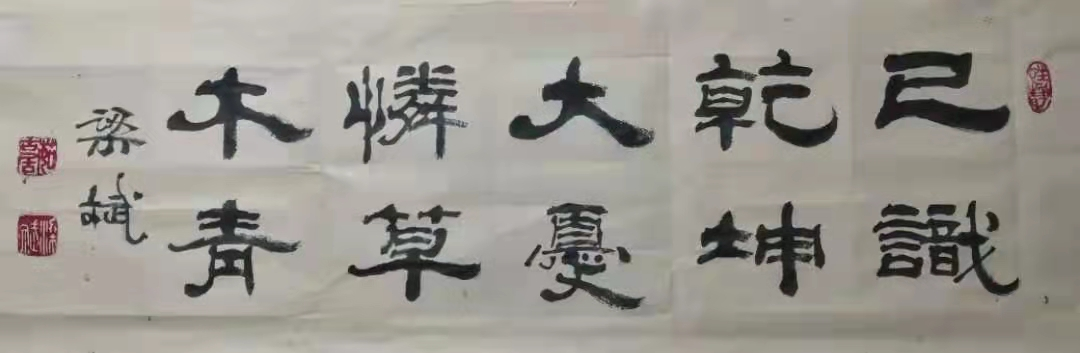 已識
乾坤
大憂
憐草
木青
梁斌